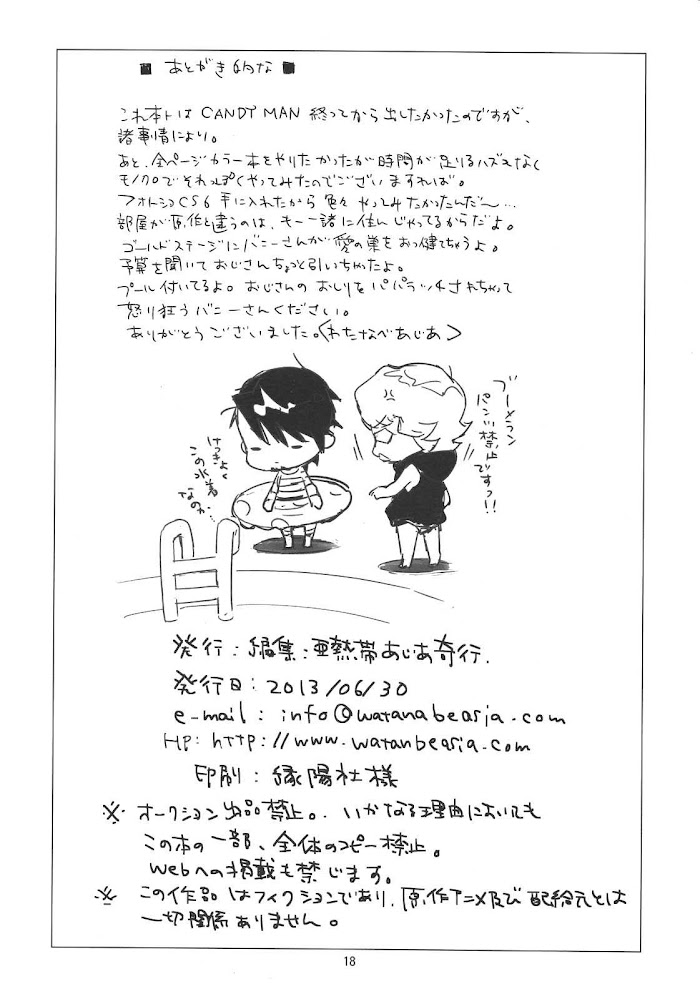 ■ あとがき的な ■
これ本トは CANDY MAN 終ってから出したかったのですが、
諸事情により。
あと、全ページカラー本をやりたかったが時間が足りるハズもなく
モノクロでそれっぽくやってみたのでございますれば。
フォトショCS6 手に入れたから色々やってみたかったんだ〜…
部屋が原作と違うのは、もー一諸に住んじゃってるからだよ。
ゴールドステージにバニーさんが愛の巣をおっ健てちゃうよ。
予算を聞いておじさんちょっと引いちゃったよ。
プール付いてるよ。おじさんのおしりをパパラッチされちゃって
怒り狂うバニーさんください。
ありがとうございました。<わたなべあじあ>
ブーメラン
パンツ禁止ですっ!!
けっきょく
この水着
なのか…
発行:編集:亜熱帯あじあ奇行.
発行日:2013/06/30
e-mail : info@watanabeasia.com
HP: http://www.watanbeasia.com
印刷:縁陽社様
※ オークション出品禁止。いかなる理由においても
この本の一部、全体のコピー禁止。
Webへの掲載も禁じます。
※ この作品はフィクションであり、原作アニメ及び配給元とは
一切関係ありません。
18